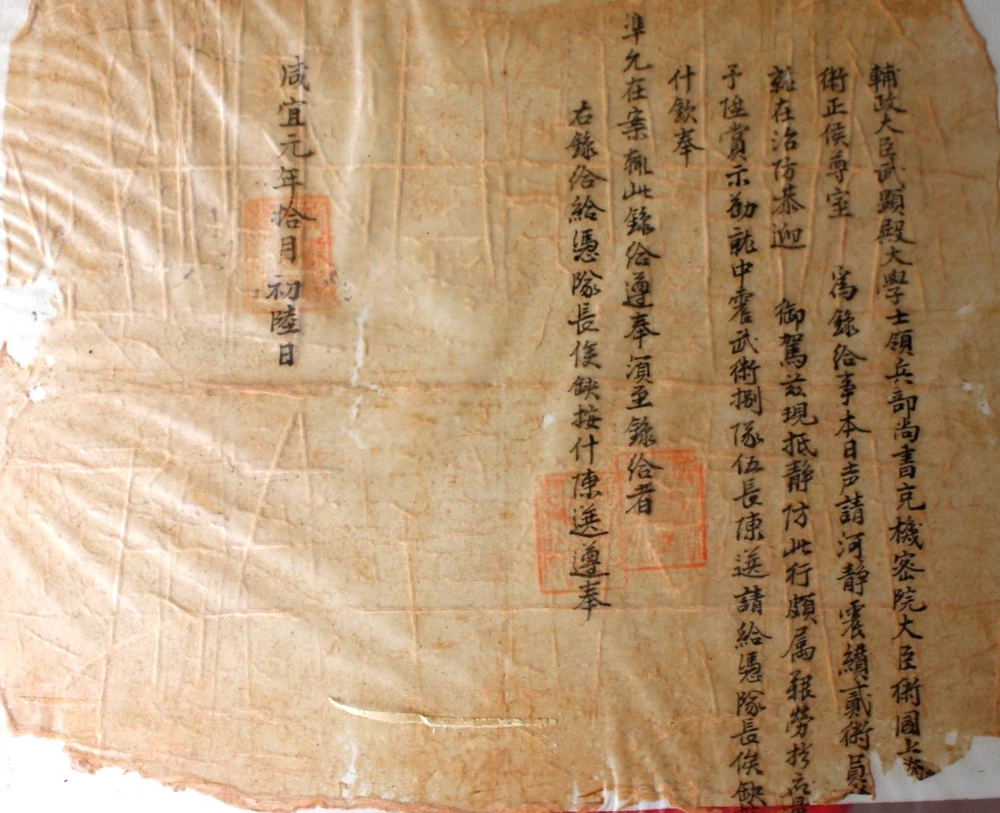 輔政大臣武顯殿大學士領兵部尚書充機密院大臣衛國上將
衛正侯尊室 為錄給事本日声請河静震績貳衛員
就在治防恭迎 御駕茲現抵静防此行頗属艱勞
予陞賞示勸就中震武衛捌隊伍長陳送請給憑隊長俟缺
什欽奉
準允在案輒此錄給遵奉須至錄給者
右錄給給憑隊長俟缺按什陳送遵奉
咸宜元年拾月初陸日